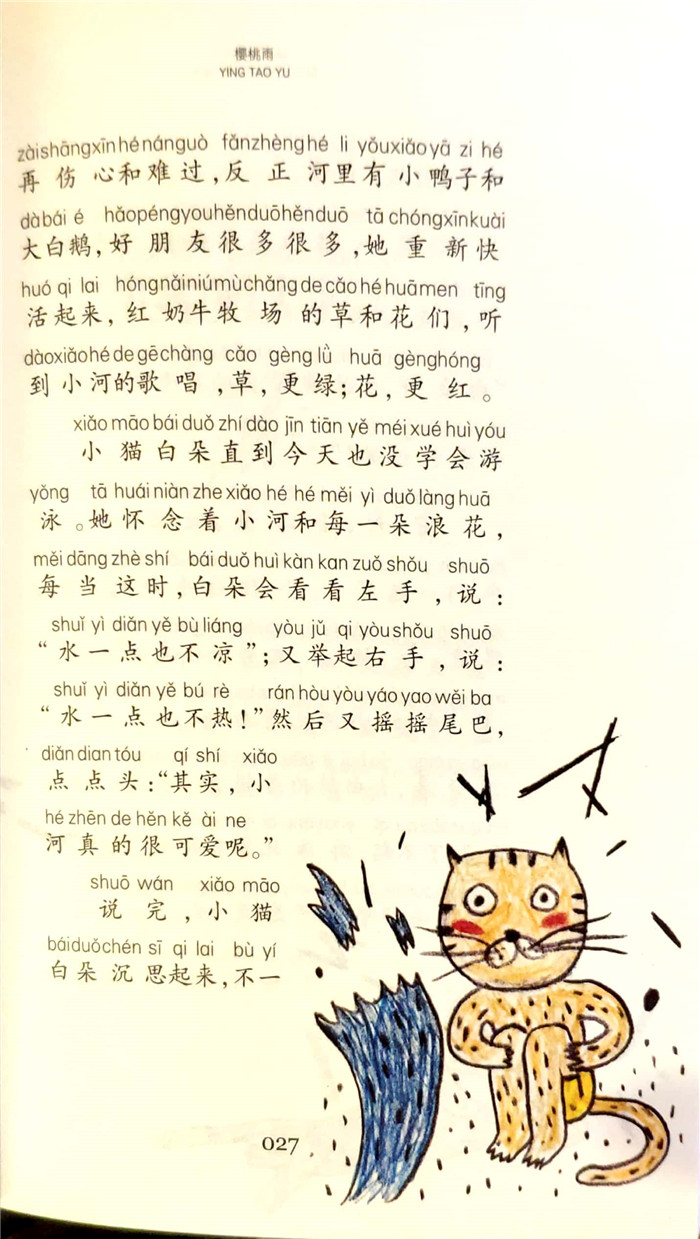 樱桃雨
YING TAO YU
zàishāngxīnhénánguò fǎnzhènghé li yǒuxiǎoyā zi hé
再伤心和难过,反正河里有小鸭子和
dàbái é hǎopéngyouhěnduōhěnduō tā chóngxīnkuài
大白鹅,好朋友很多很多,她重新快
huó qi lai hóngnǎiniúmùchǎng de cǎo hé huāmen tīng
活起来,红奶牛牧场的草和花们,听
dàoxiǎohé de gēchàng cǎo gèng lǜ huā gènghóng
到小河的歌唱,草,更绿;花,更红。
xiǎo māo bái duǒ zhí dào jīn tiān yě méi xué huì yóu
小猫白朵直到今天也没学会游
yǒng tā huái niàn zhe xiǎo hé hé měi yì duǒ làng huā
泳。她怀念着小河和每一朵浪花,
měi dāng zhè shí bái duǒ huì kàn kan zuǒ shǒu shuō
每当这时,白朵会看看左手,说:
shuǐ yì diǎn yě bù liáng yòu jǔ qi yòu shǒu shuō
“水一点也不凉”;又举起右手,说:
shuǐ yì diǎn yě bú rè rán hòu yòu yáo yao wěi ba
“水一点也不热!”然后又摇摇尾巴,
diǎn dian tóu qí shí xiǎo
点点头:“其实,小
hé zhēn de hěn kě ài ne
河真的很可爱呢。”
shuō wán xiǎo māo
说完,小猫
báiduǒchén sī qi lai bù yí
白朵沉思起来,不一
027